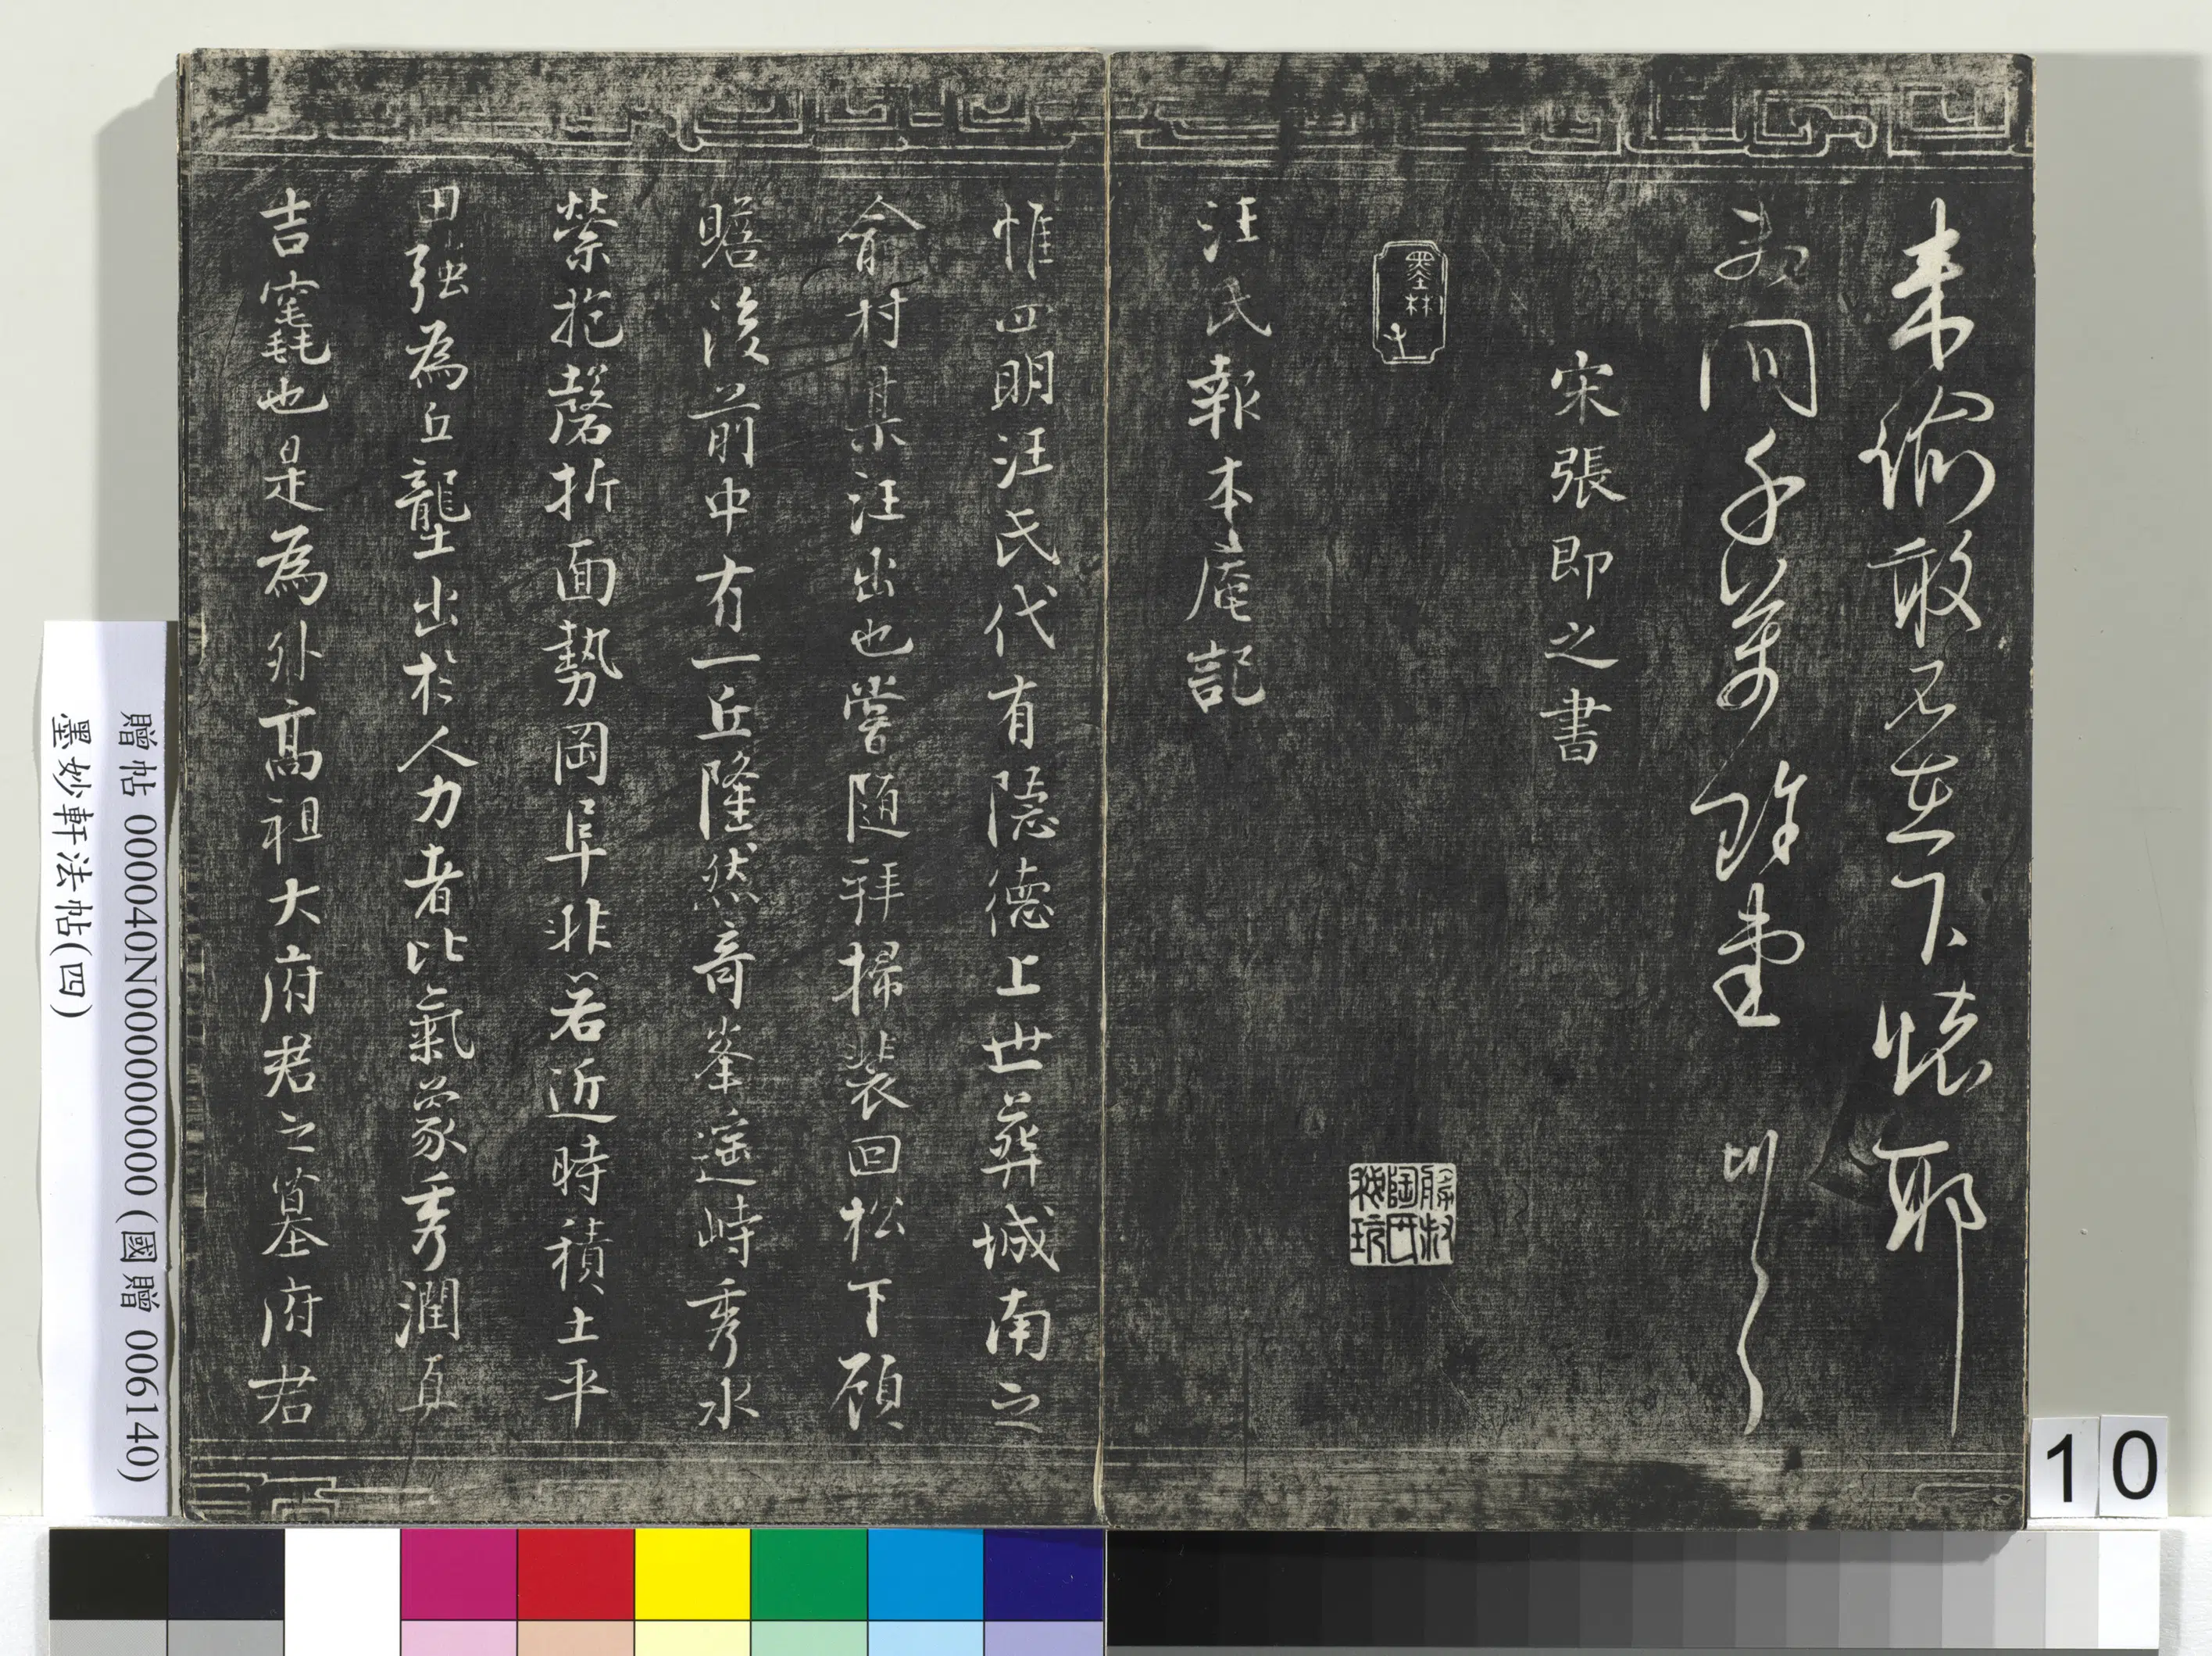 來諭敢不在下懷耶
宋張即之書
墨林
汪氏報本庵記
惟四明汪氏代有隱德上世葬城南之
俞村某汪出也嘗隨拜掃裴回松下顧
瞻後前中有一丘隆然奇峯遥峙秀水
縈抱磬折面勢岡阜非若近時積土平
田強為丘壟出於人力者比氣象秀潤真
吉竁也是為外高祖大府君之墓府君
贈帖 000040N000000000 (國贈 006140)
墨妙軒法帖(四)
10